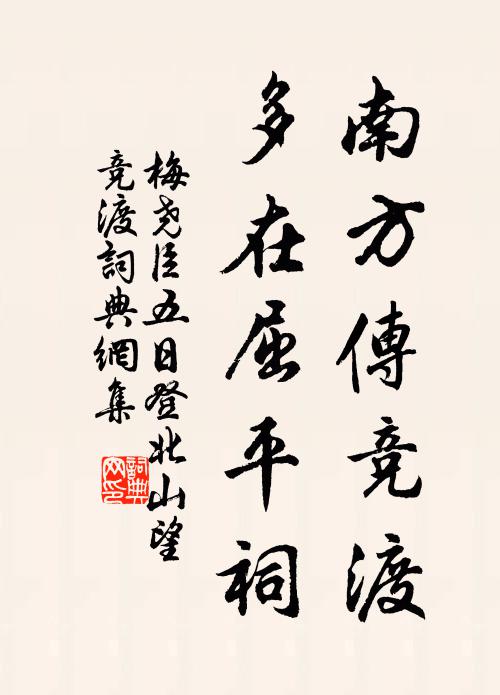 南方傳競渡
多在屈平祠
梅尧臣五日登北山望
竞渡詞典網集
詞典
网印